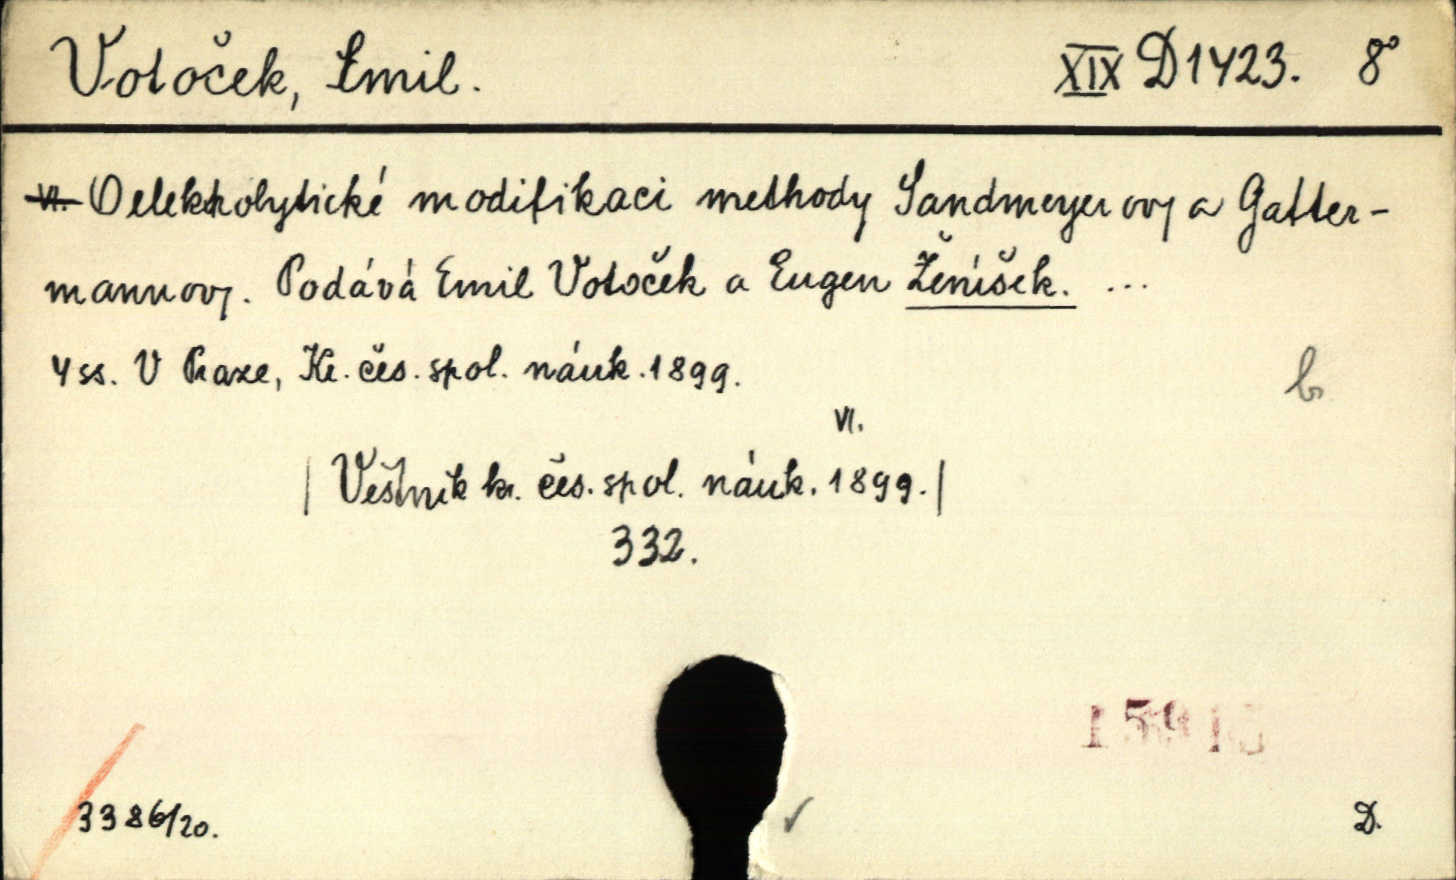 Votoček, Emil. XIX D1423. 8°
VI. O elektrolytické modifikaci methody Sandmeyerovy a Gatter-
mannovy. Podává Emil Votoček a Eugen Ženíšek. ...
4 ss. V Praze, Kr. čes. spol. náuk. 1899.
b
VI.
| Věstník kr. čes. spol. náuk. 1899. |
332.
3386/20.
D.